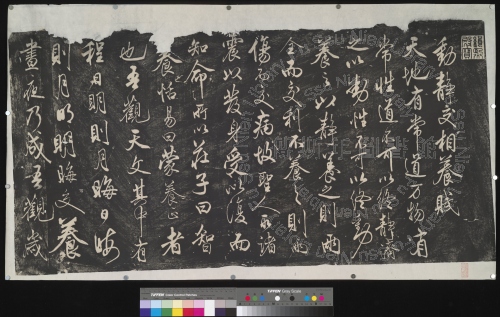 動靜交相養賦
天地有常道万物有
常性道不可以終静濟
之以動性不可以終動
濟之以静養之則兩
全而交利不養之則兩
傷而交病故聖人取諸
震以發身受以復而
知命所以莊子曰智
養恬易曰蒙養正者
也吾觀天文其中有
程日明則月晦日晦
則月明明晦交養
晝夜乃成吾觀歲